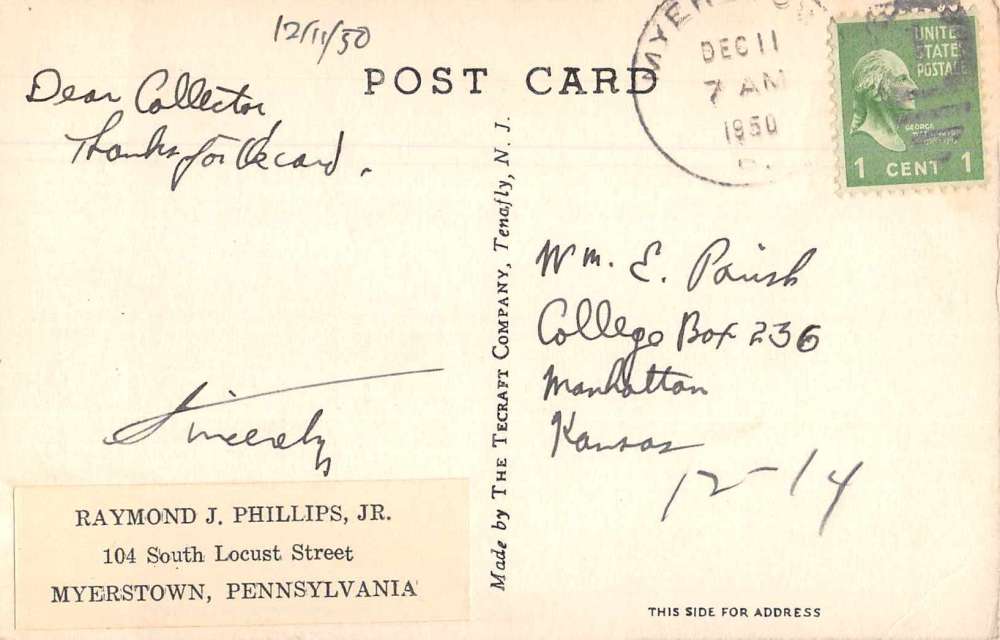 12/11/50
Dear Collector,
Thanks for the card.
Sincerely
RAYMOND J. PHILLIPS, JR.
104 South Locust Street
MYERSTOWN, PENNSYLVANIA
POST CARD
Made by THE TECRAFT COMPANY, Tenafly, N. J.
DEC 11
7 AM
1950
UNITED
STATES
POSTAGE
GEORGE
1 CENT 1
Wm. E. Parish
College Box 236
Manhattan
Kansas
12-14
THIS SIDE FOR ADDRESS